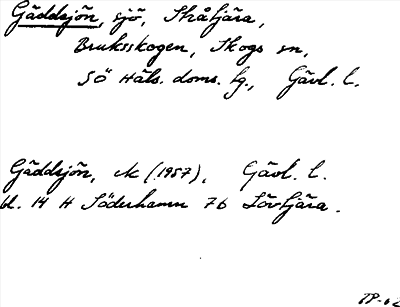 Gäddsjön, sjö, Stråtjära,
Bruksskogen, Skogs sn,
SÖ Häls. doms. fg., Gävl. l.
Gäddsjön, ek (1957), Gävl. l.
bl. 14 H Söderhamn 7b Lövtjära.